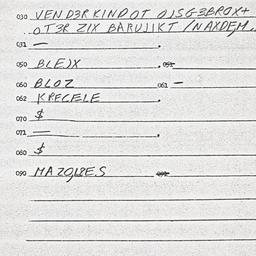 030 VEN D3R KIND OT OJSGEBROX+
OT3R ZIX BARUJIKT / NAXDEM.
031 —
050 BLEJX 051
060 BLOZ 061 —
062 KREGELE
070 $
071 —
080 $
090 MAZOLRES